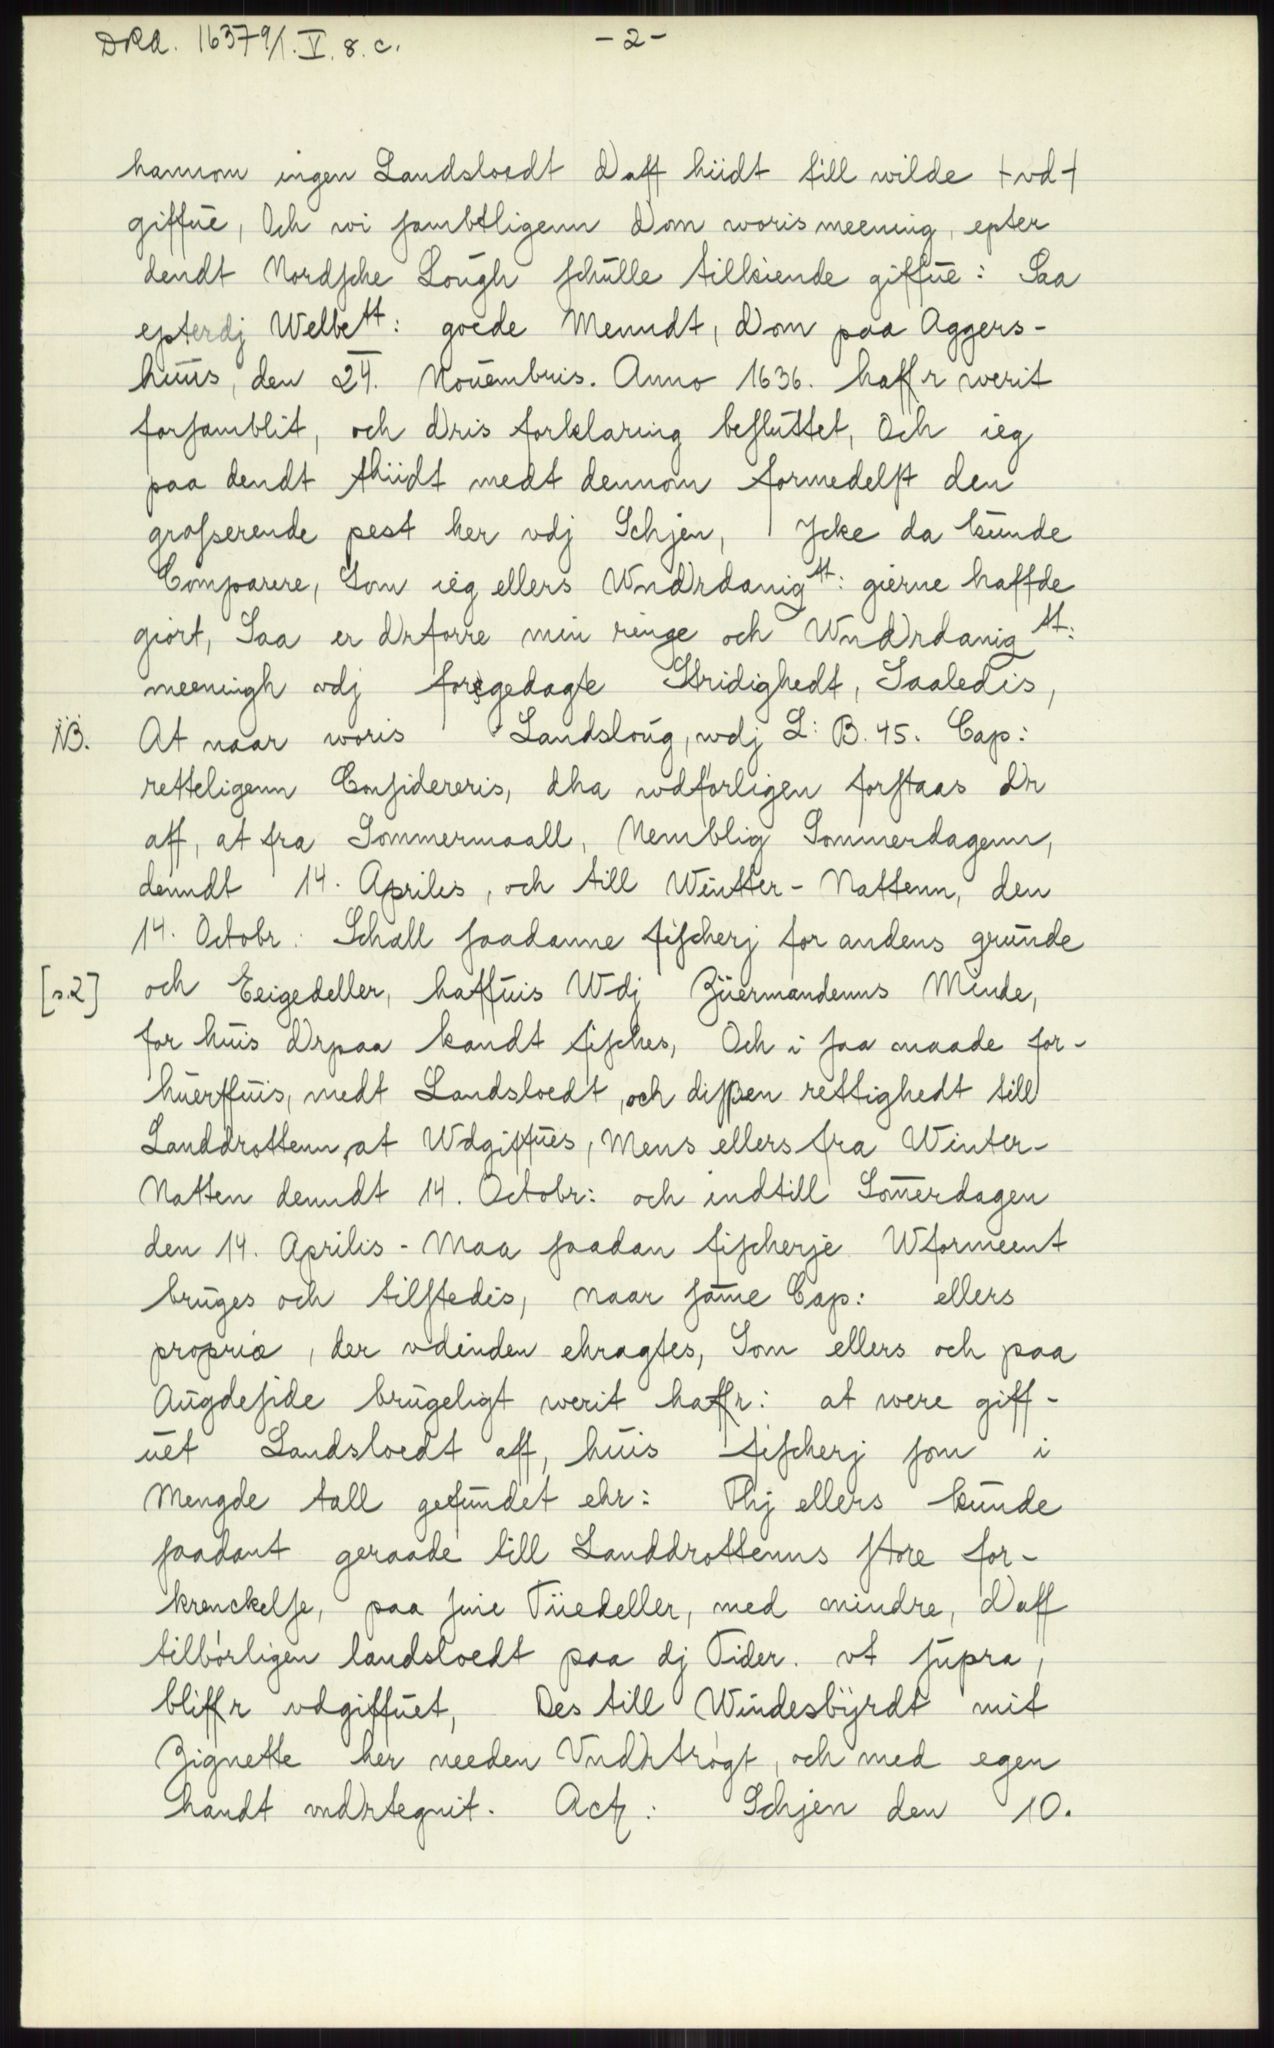 DRA. 16379/1. V. 8. c. - 2 -
hannom ingen Landsloedt Daff hüdt till wilde + vd +
giffue, Och wi sambtligenn Dom woris meening, epter
dendt Nordsche Lough schulle tilkiende giffue: Saa
epterdj Welbett: goede Menndt, Dom paa Aggers-
huus, den 24. Nouembris. Anno 1636. haffr werit
forsamblit, och Dris forklaring besluttet, Och ieg
paa dendt thiidt medt dennom formedelst den
grasserende pest her vdj Schjen, Jcke da kunde
Comparere, Som ieg ellers VnDrdanigtt: gierne haffde
giort, Saa er Drforre min ringe och VnDrdanigtt:
meeningh vdj foregedagte Stridighedt, Saaledis,
NB. At naar woris Landsloug, wdj L: B. 45. Cap:
retteligenn Considereris, dha wdforligen forstaas Dr
aff, at fra Sommermaall, Nemblig Sommerdagenn,
denndt 14. Aprilis, och till Wintter-Nattenn, den
14. Octobr: Schall saadanne fischerj for andens grunde
[s.2] och Eeigedeller, haffuis Wdj Büermandenns Minde,
for huis Drpaa kandt fisches, Och i saa maade for-
huerffuis, medt Landsloedt, och dissen rettighedt till
Landdrottenn, at Wdgiffues, Mens ellers fra Winter-
Natten denndt 14. Octobr: och indtill Som̅erdagen
den 14. Aprilis - Maa saadan fischerje Wformeent
bruges och tilstedis, naar sam̅e Cap: ellers
propriæ, der vdinden ehragtes, Som ellers och paa
Augdeside brugeligt werit haffr: at were giff-
uet Landsloedt aff, huis fischerj som i
Mengde tall gefundet ehr: Thj ellers kunde
saadant geraade till Landdrottenns store for-
krenckelse, paa sine Tiiedeller, med mindre, Daff
tilbørligen landsloedt paa dj Tider. vt supra,
bliffr vdgiffuet, Des till Windesbÿrdt mit
Zignette her needen VnDrtrøgt, och med egen
handt vnDrtegnit. Act: Schjen den 10.